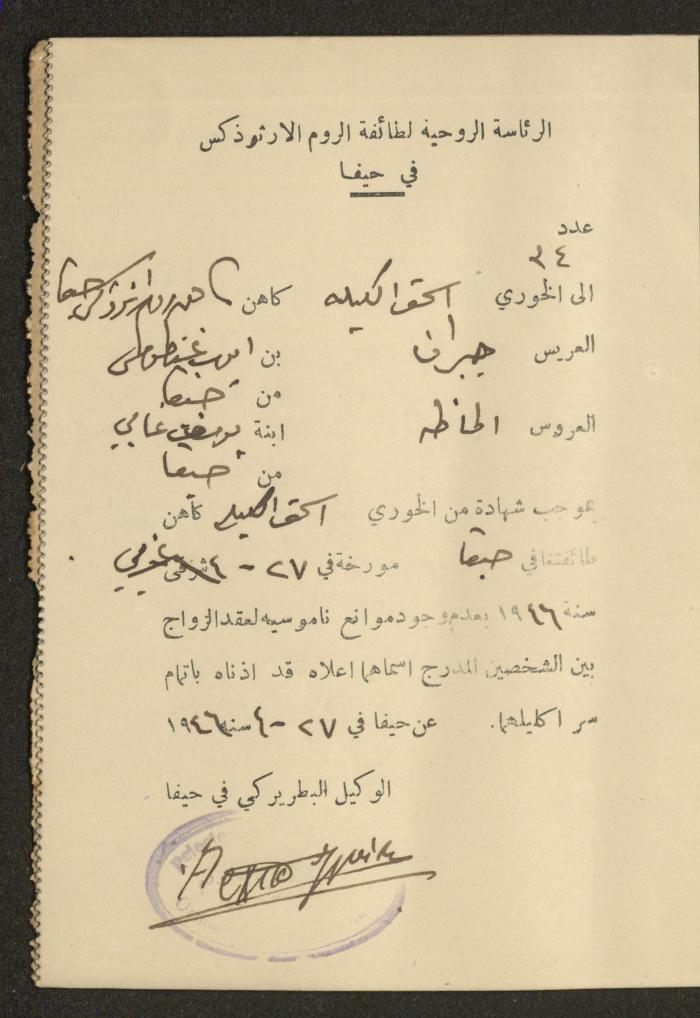 الرئاسة الروحية لطائفة الروم الارثوذكس
في حيفا
عدد
٣٤
الى الخوري اسحق الكيله كاهن روم ارثوذكس حيفا
العريس جبران بن ايوب
من حيفا
العروس ابنة
من حيفا
بموجب شهادة من الخوري اسحق الكيله كاهن
طائفتنا في حيفا مورخة في ٢٧ - ٤ شرقي غربي
سنة ١٩٤٦ بعدم وجود موانع ناموسيه لعقد الزواج
بين الشخصين المدرج اسماهما اعلاه قد اذناه باتمام
سر اكليلهما. عن حيفا في ٢٧ - ٤ سنه ١٩٤٦
الوكيل البطريركي في حيفا